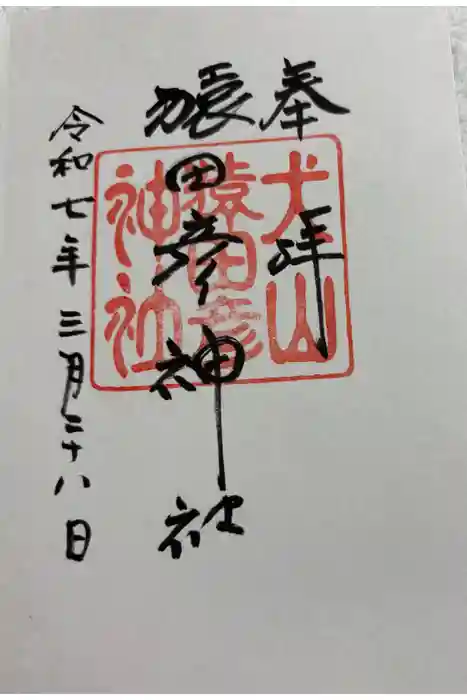 奉拝
犬山
猿田彦
神社
猿田彦神社
令和七年三月二十八日